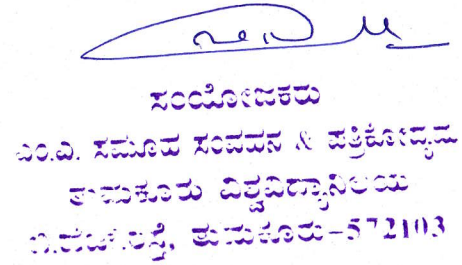 ಸಂಯೋಜಕರು
ಎಂ.ಎ. ಸಮೂಹ ಸಂವಹನ & ಪತ್ರಿಕೋದ್ಯಮ
ತುಮಕೂರು ವಿಶ್ವವಿದ್ಯಾನಿಲಯ
ಬಿ.ಹೆಚ್.ರಸ್ತೆ, ತುಮಕೂರು-572103